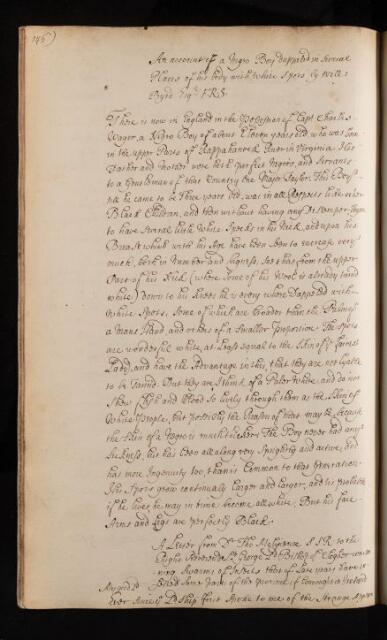 146)
An account of a Negro Boy dappeled in several
Places of his body with White Spots, by Will:
Byrd Esqr. F.R.S.
There is now in England in the Possession of Capt. Charles
Wager, a Negro Boy of about Eleven years old who was born
in the upper Parts of Rappahanock River in Virginia. His
Father and Mother were both perfect Negro's, and Servants
to a Gentleman of that Country one Major Taylor. This Boy
till he came to be Three years old, was in all Respects like other
Black Children, and then without having any Distemper, began
to have Several little White Specks in his Neck, and upon his
Breast which with his Age have been Seen to encrease very
much, both in Number and bigness. So that from the upper
Part of his Neck (where Some of his Wool is already turn'd
white) down to his Knees he is every where dappeled with
White Spots, Some of which are broader than the Palm of
a Mans Hand, and others of a Smaller Proportion. The Spots
are wonderful white, at Least equal to the Skin of ye fairest
Lady, and have the Advantage in this, that they are not lyable
to be tann'd. But they are I think of a Paler White, and do not
Shew Flesh and Blood So lively through them as the Skin of
White People, but possibly the Reason of that may be, because
the Skin of a Negro is much thicker. The Boy never had any
Sickness, but has been all along very Sprightly and active, and
has more Ingenuity too, than is Common to that Generation.
His Spots grow continually Larger and Larger, and tis probable
if he lives, he may in time become all white. But his face
Arms and Legs are perfectly Black.
A Letter from Dr. Tho: Molyneux S.R.S. to the
Right Reverend St. George Ld. Bishop of Clogher concer
ning Swarms of Insects that of Late years have in
fested Some Parts of the Province of Connought in Ireland
My good Ld.
Ever Since yr Ldship first Spoke to me of the Strange Appea